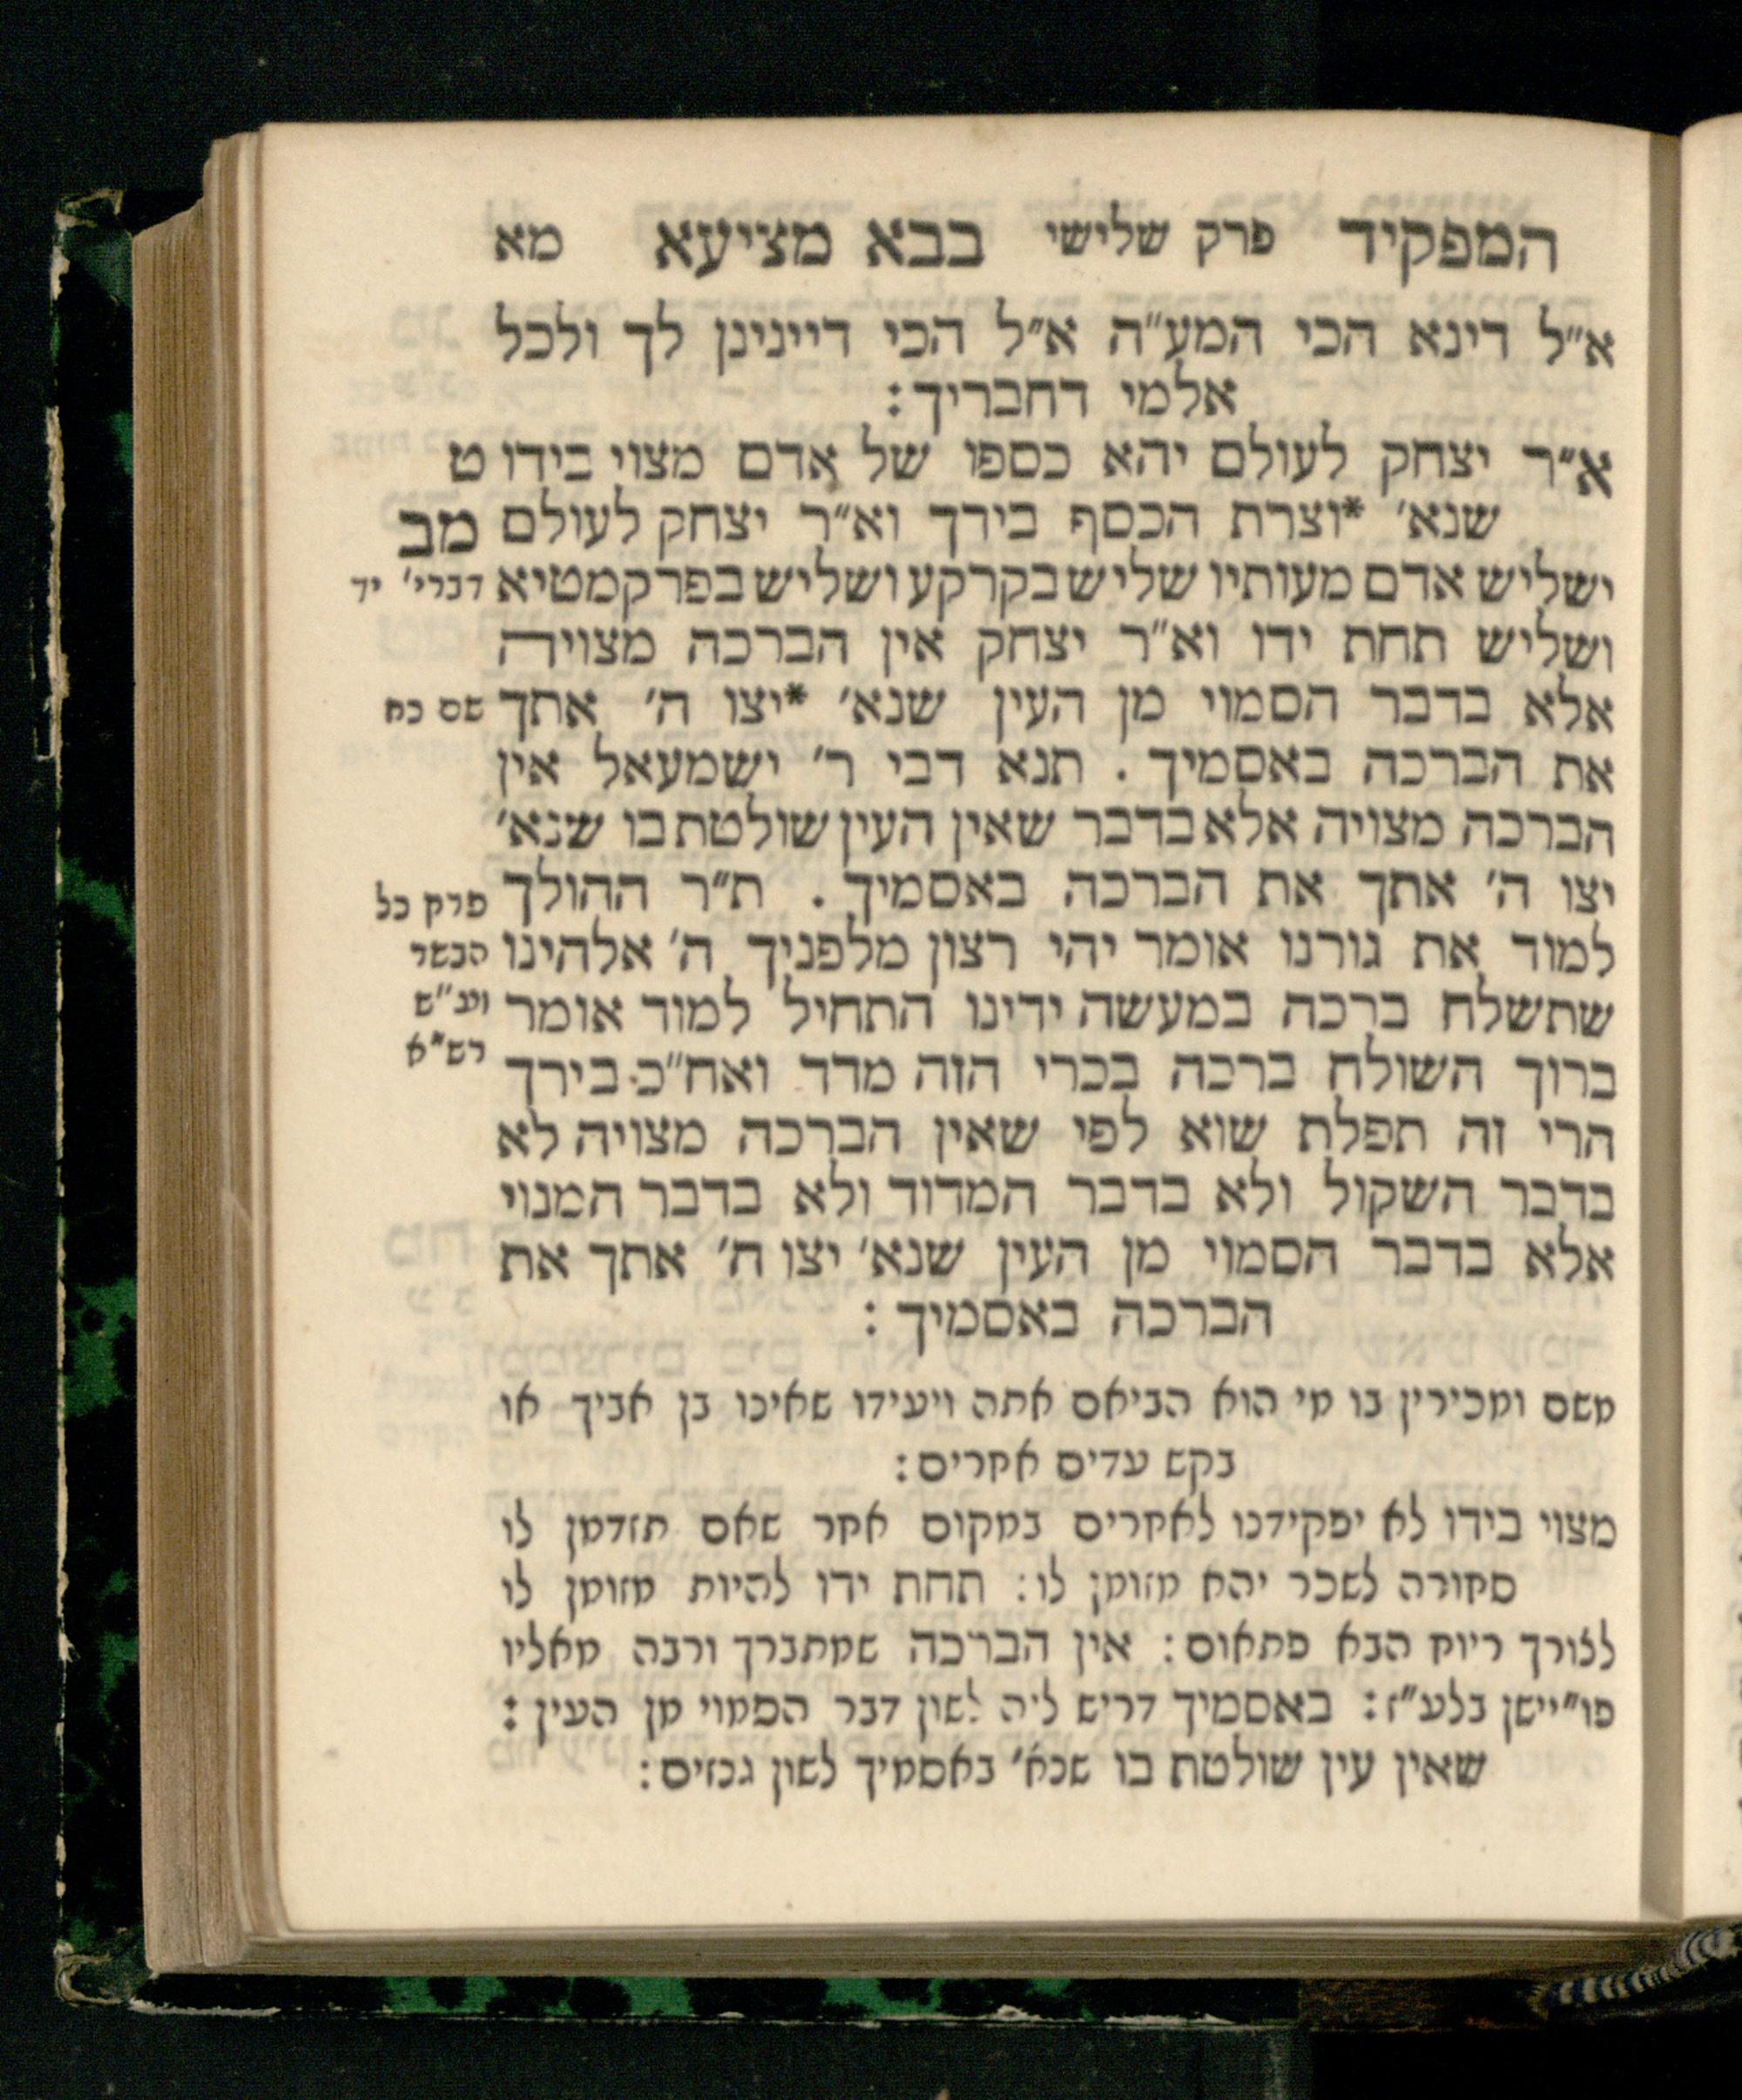 המפקיד פרק שלישי בבא מציעא מא
א״ל דינא הכי המע״ה א״ל הכי דיינינן לך ולכל
אלמי דחבריך:
א״ר יצחק לעולם יהא כספו של אדם מצוי בידו ט
שנא׳ *וצרת הכסף בידך וא״ר יצחק לעולם מב
ישליש אדם מעותיו שליש בקרקע ושליש בפרקמטיא דברי׳ יד
ושליש תחת ידו וא״ר יצחק אין הברכה מצויה
אלא בדבר הסמוי מן העין שנא׳ *יצו ה׳ אתך שם כח
את הברכה באסמיך. תנא דבי ר׳ ישמעאל אין
הברכה מצויה אלא בדבר שאין העין שולטת בו שנא׳
יצו ה׳ אתך את הברכה באסמיך. ת״ר ההולך פרק כל
למוד את גורנו אומר יהי רצון מלפניך ה׳ אלהינו הבשר
שתשלח ברכה במעשה ידינו התחיל למוד אומר ועי״ש
ברוך השולח ברכה בכרי הזה מדד ואח״כ בירך רש״א
הרי זה תפלת שוא לפי שאין הברכה מצויה לא
בדבר השקול ולא בדבר המדוד ולא בדבר המנוי
אלא בדבר הסמוי מן העין שנא׳ יצו ה׳ אתך את
הברכה באסמיך:
משם ומכירין בו מי הוא הביאם אתה ויעידו שאינו בן אביך או
בקש עדים אחרים:
מצוי בידו לא יפקידנו לאחרים במקום אחר שאם תזדמן לו
סחורה לשכר יהא מזומן לו: תחת ידו להיות מזומן לו
לצורך ריוח הבא פתאום: אין הברכה שמתברך ורבה מאליו
פו״יישן בלע״ז: באסמיך דריש ליה לשון דבר הסמוי מן העין:
שאין עין שולטת בו שנא׳ באסמיך לשון גנזים: